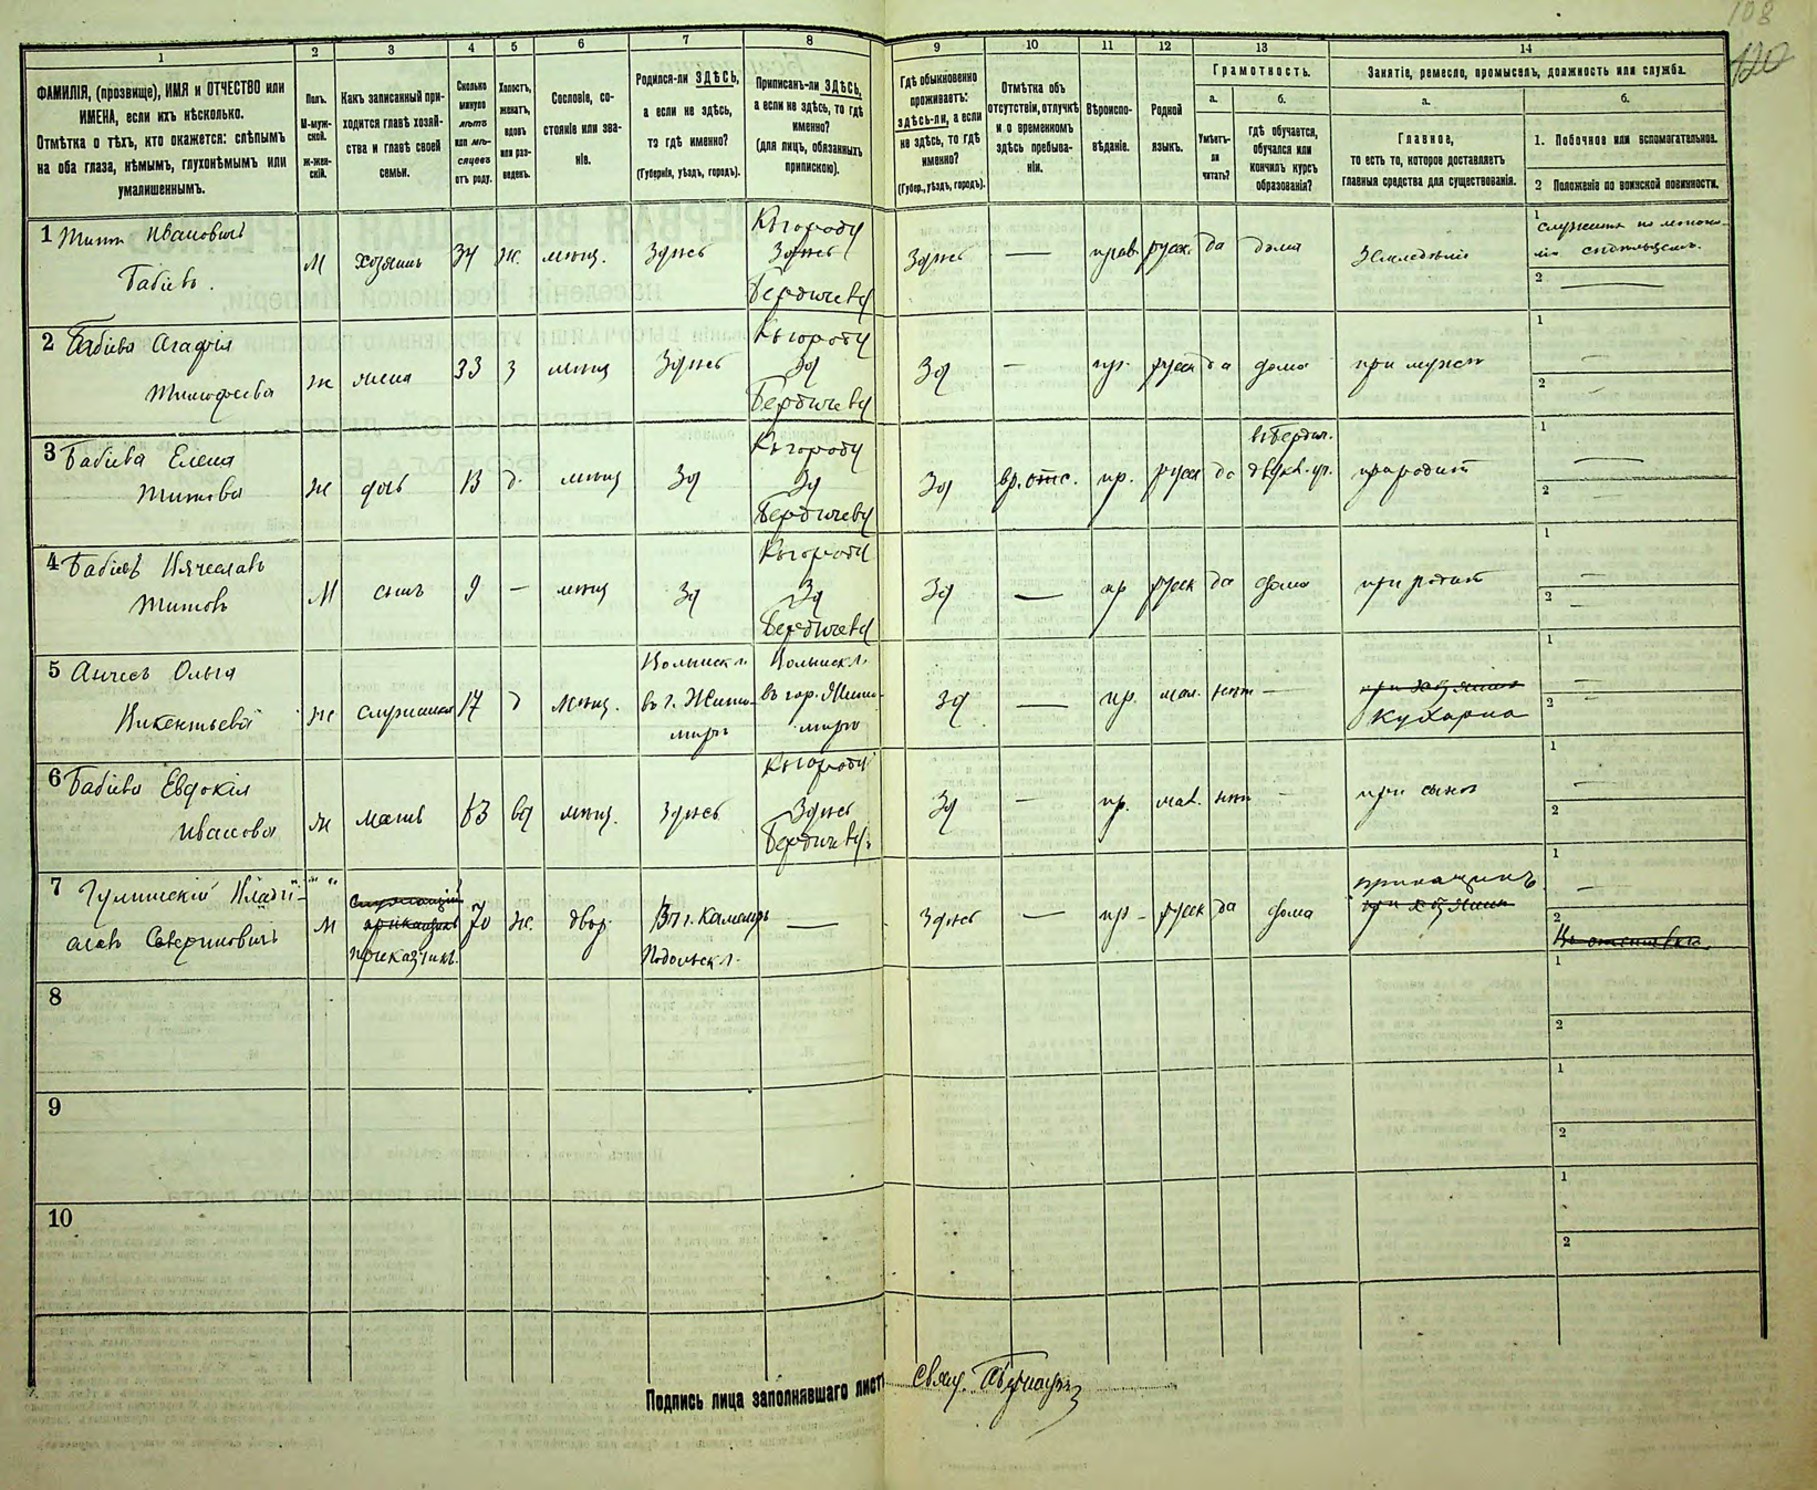 108
120
1
2
3
4
5
6
7
8
9
10
11
12
13
14
ФАМИЛІЯ, (прозвище), ИМЯ и ОТЧЕСТВО или
ИМЕНА, если ихъ нѣсколько.
Отмѣтка о тѣхъ, кто окажется: слѣпымъ
на оба глаза, нѣмымъ, глухонѣмымъ или
умалишеннымъ.
Полъ.
М-муж-
ской.
ж-жен-
скій.
Какъ записанный при-
ходится главѣ хозяй-
ства и главѣ своей
семьи.
Сколько
минуло
лѣтъ
или мѣ-
сяцевъ
отъ роду.
Холостъ,
женатъ,
вдовъ
или раз-
веденъ.
Сословіе, со-
стояніе или зва-
ніе.
Родился-ли ЗДѢСЬ,
а если не здѣсь,
то гдѣ именно?
(Губернія, уѣздъ, городъ).
Приписанъ-ли ЗДѢСЬ,
а если не здѣсь, то гдѣ
именно?
(для лицъ, обязанныхъ
припискою).
Гдѣ обыкновенно
проживаетъ:
здѣсь-ли, а если
не здѣсь, то гдѣ
именно?
(Губер., уѣздъ, городъ).
Отмѣтка объ
отсутствіи, отлучкѣ
и о временномъ
здѣсь пребыва-
ніи.
Вѣроиспо-
вѣданіе.
Родной
языкъ.
Грамотность.
а.
Умѣетъ-
ли
читать?
б.
гдѣ обучается,
обучался или
кончилъ курсъ
образованія?
Занятіе, ремесло, промыселъ, должность или служба.
а.
Главное,
то есть то, которое доставляетъ
главныя средства для существованія.
б.
1. Побочное или вспомогательное.
2 Положеніе по воинской повинности.
1 Титъ Ивановичъ
Бабіевъ.
М
хозяинъ
34
ж.
мѣщ.
Здѣсь
Къ городу
Здѣсь
Бердичеву
Здѣсь
—
прав.
русск.
да
дома
Земледѣліе
1
2
—
2 Бабіева Агафія
Тимофеева
ж
жена
33
з
мѣщ
Здѣсь
Къ городу
Зд
Бердичеву
Зд
—
пр.
русск
да
дома
при мужѣ
1
—
2
—
3 Бабіева Елена
Титова
ж
дочь
13
д.
мѣщ
Зд
Къ городу
Зд
Бердичеву
Зд
вр. отс.
пр.
русск
да
въ Бердич.
двухкл. уч.
при родит
1
—
2
—
4 Бабіевъ Вячеславъ
Титовъ
М
сынъ
9
—
мѣщ
Зд
Къ городу
Зд
Бердичеву
Зд
—
пр
русск
да
дома
при родит
1
—
2
—
5
Ольга
Викентьева
ж
служанка
17
д
мѣщ.
Волынск г.
въ г. Жито-
мирѣ
Волынск г.
въ гор. Жито-
мирѣ
Зд
—
пр.
мал.
нѣт
—
Кухарка
1
—
2
—
6 Бабіева Евдокія
Иванова
ж
мать
63
вд
мѣщ.
Здѣсь
Къ городу
Здѣсь
Бердичеву
Зд
—
пр.
мал.
нѣт
—
при сынѣ
1
—
2
7
М
приказчикъ
70
ж.
двор.
Подольск г.
—
Здѣсь
—
пр -
русск
да
дома
приказчикъ
1
—
2
8
1
2
9
1
2
10
1
2
Подпись лица заполнявшаго листъ
Свящ.